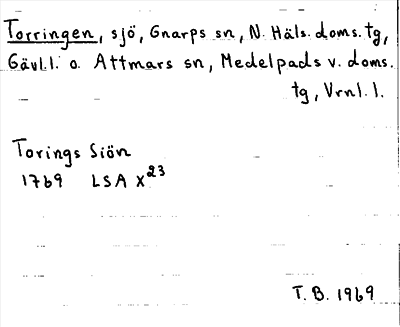 Torringen, sjö, Gnarps sn, N. Häls. doms. tg,
Gävl. l. o. Attmars sn, Medelpads v. doms.
tg, Vrnl. l.
Torings Siön
1769 LSA X23
T. B. 1969